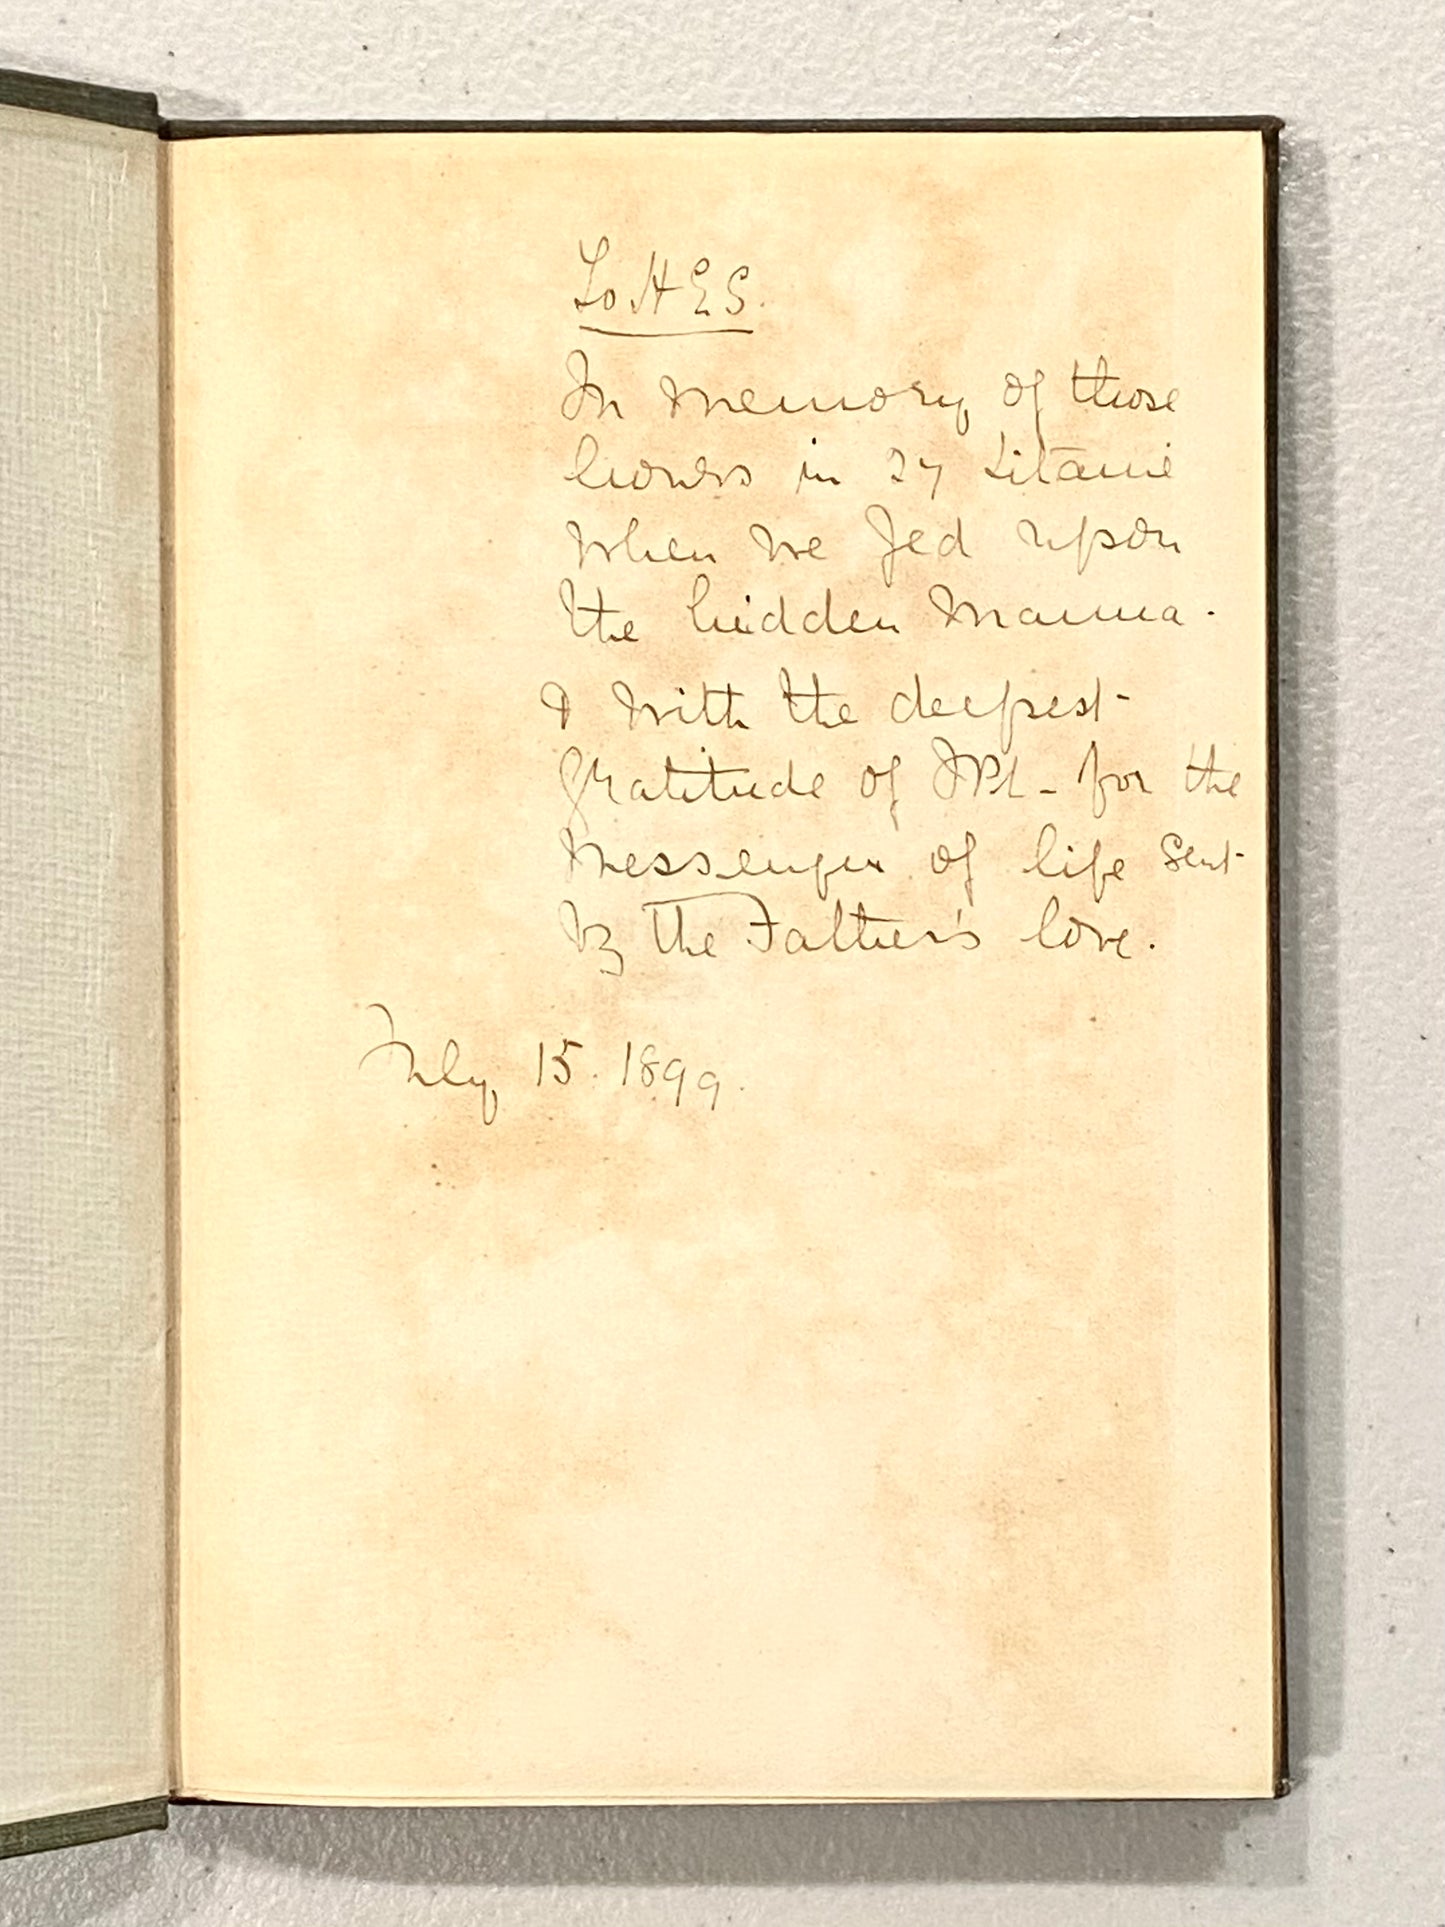 To H E S.
In memory of those
hours in 27
when we fed upon
the hidden manna.
& with the deepest
gratitude of for the
messenger of life sent
by the Father's love.
July 15. 1899.